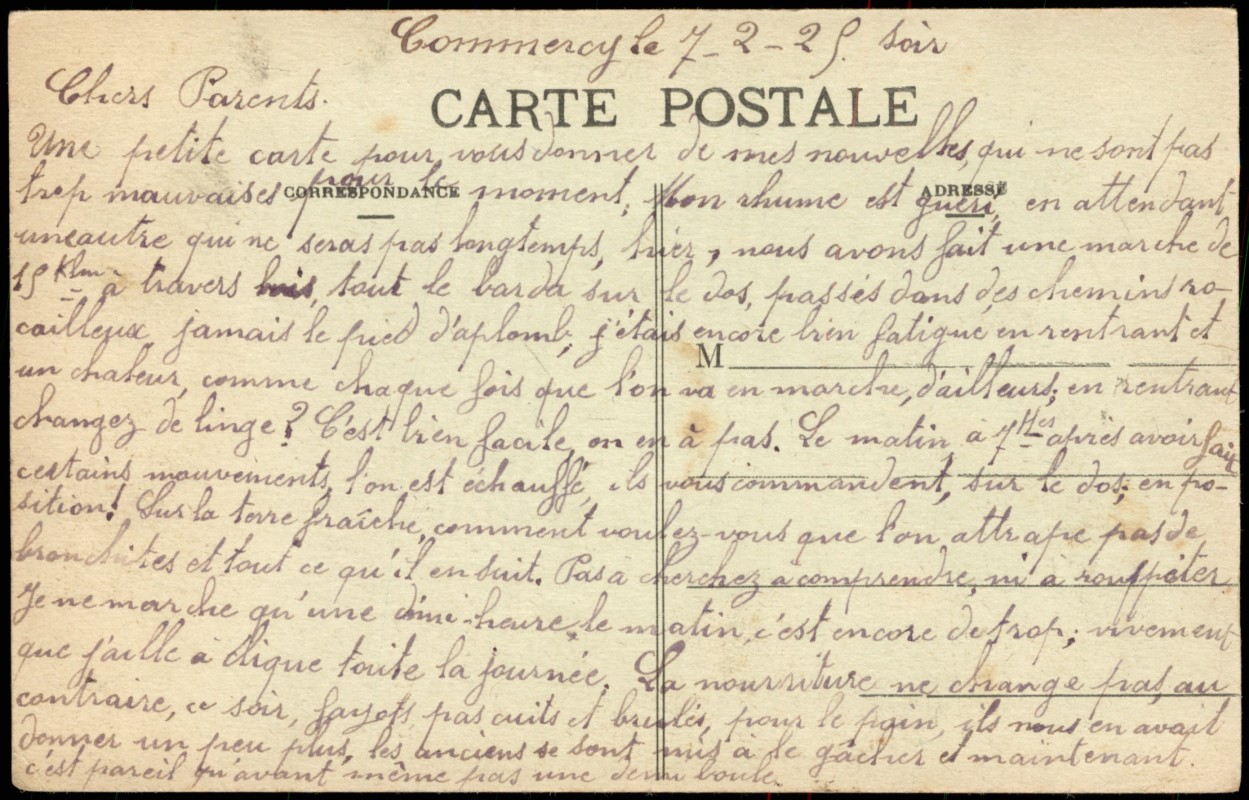 Commercy le 7-2-25. soir
Chers Parents.
CARTE POSTALE
Une petite carte pour vous donner de mes nouvelles, qui ne sont pas
trop mauvaises pour le moment; Mon rhume est guéri, en attendant
CORRESPONDANCE
ADRESSE
une autre qui ne seras pas longtemps, hier, nous avons fait une marche de
15 Klm à travers bois, tout le barda sur le dos, passés dans des chemins ro-
cailleux, jamais le pied d'aplomb; j'étais encore bien fatigué en rentrant et
M
un chaleur, comme chaque fois que l'on va en marche, d'ailleurs; en rentrant
changez de linge? C'est bien facile, on en à pas. Le matin à 7 Hes après avoir fait
certains mouvements, l'on est échauffé, ils vous commandent, sur le dos; en po-
sition! Sur la terre fraîche, comment voulez-vous que l'on attrape pas de
bronchites et tout ce qu'il en suit. Pas à cherchez à comprendre, ni à rouspéter
Je ne marche qu'une dimi-heure, le matin, c'est encore de trop; vivement
que j'aille à clique toute la journée. La nourriture ne change pas, au
contraire, ce soir, fayots, pas cuits et brulés, pour le pain, ils nous en avait
donner un peu plus, les anciens se sont mis à le gâcher et maintenant.
c'est pareil qu'avant même pas une demi boule